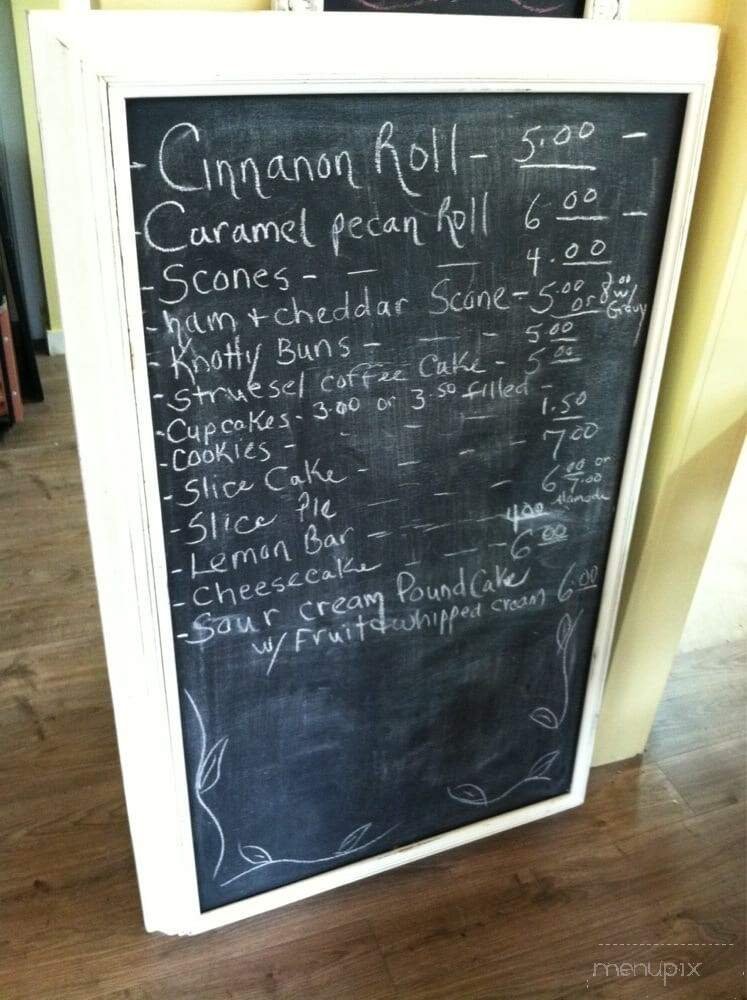 - Cinnanon Roll - 5.00 -
- Caramel pecan Roll 6 00 -
- Scones - - - 4.00
- ham + cheddar Scone - 5.00 or 8.00 w/ Gravy
- Knotty Buns - - - 5 00
- Struesel coffee Cake - 5 00
- Cupcakes - 3.00 or 3.50 filled -
- Cookies - - - - 1.50
- Slice Cake - - - - 7 00
- Slice Pie - - - 6 00 or 7.00 alamode
- Lemon Bar - - - 4 00
- Cheesecake - - - 6 00
- Sour cream Pound Cake
w/ Fruit & whipped cream 6.00
menupix